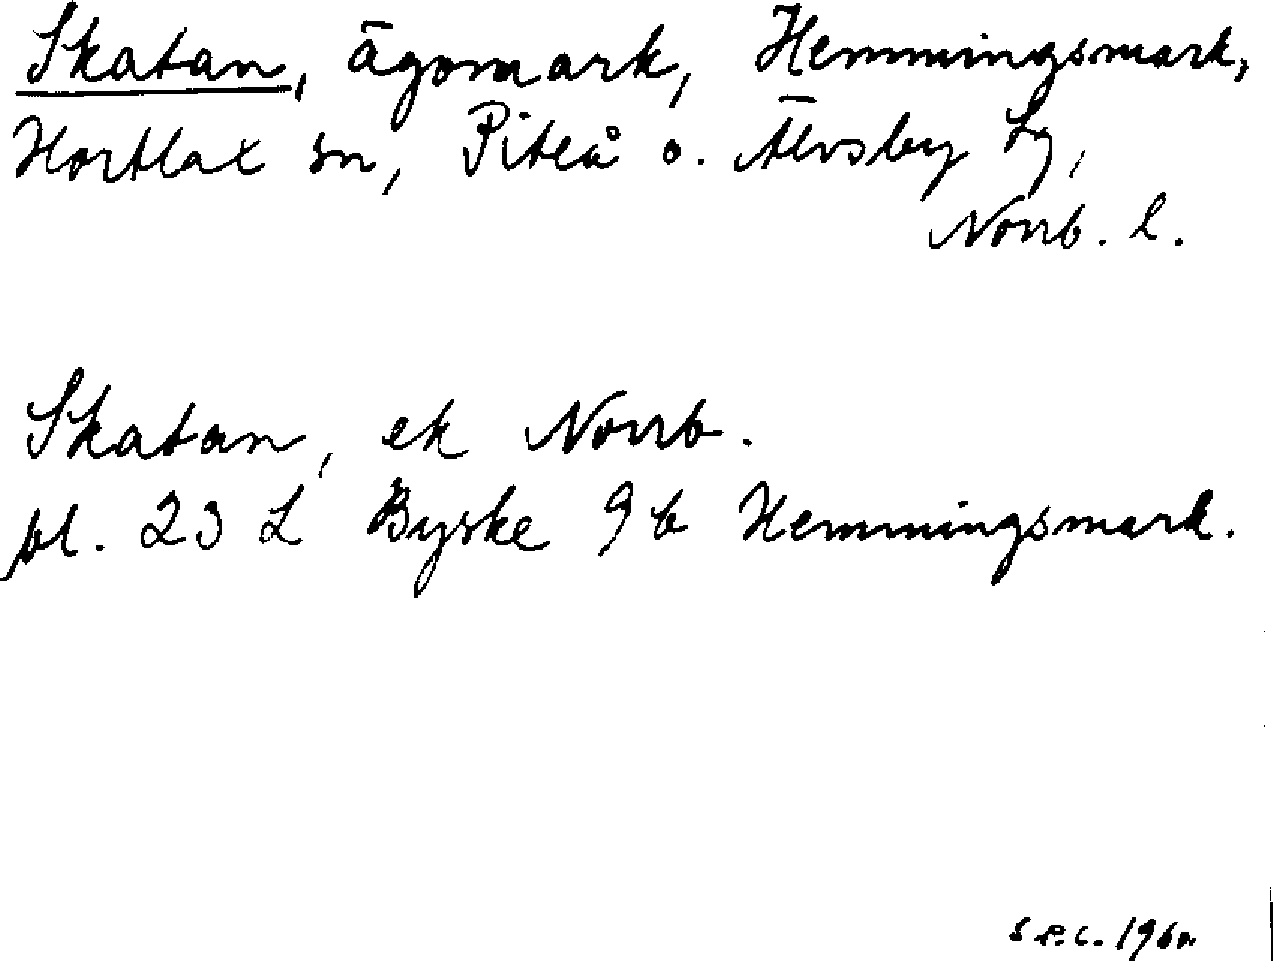 Skatan, ägomark, Hemmingsmark,
Hortlax sn, Piteå o. Älvsby tg,
Norrb. l.
Skatan, ek Norrb.
bl. 23 L Byske 9 b Hemmingsmark.
s.e.c. 1960